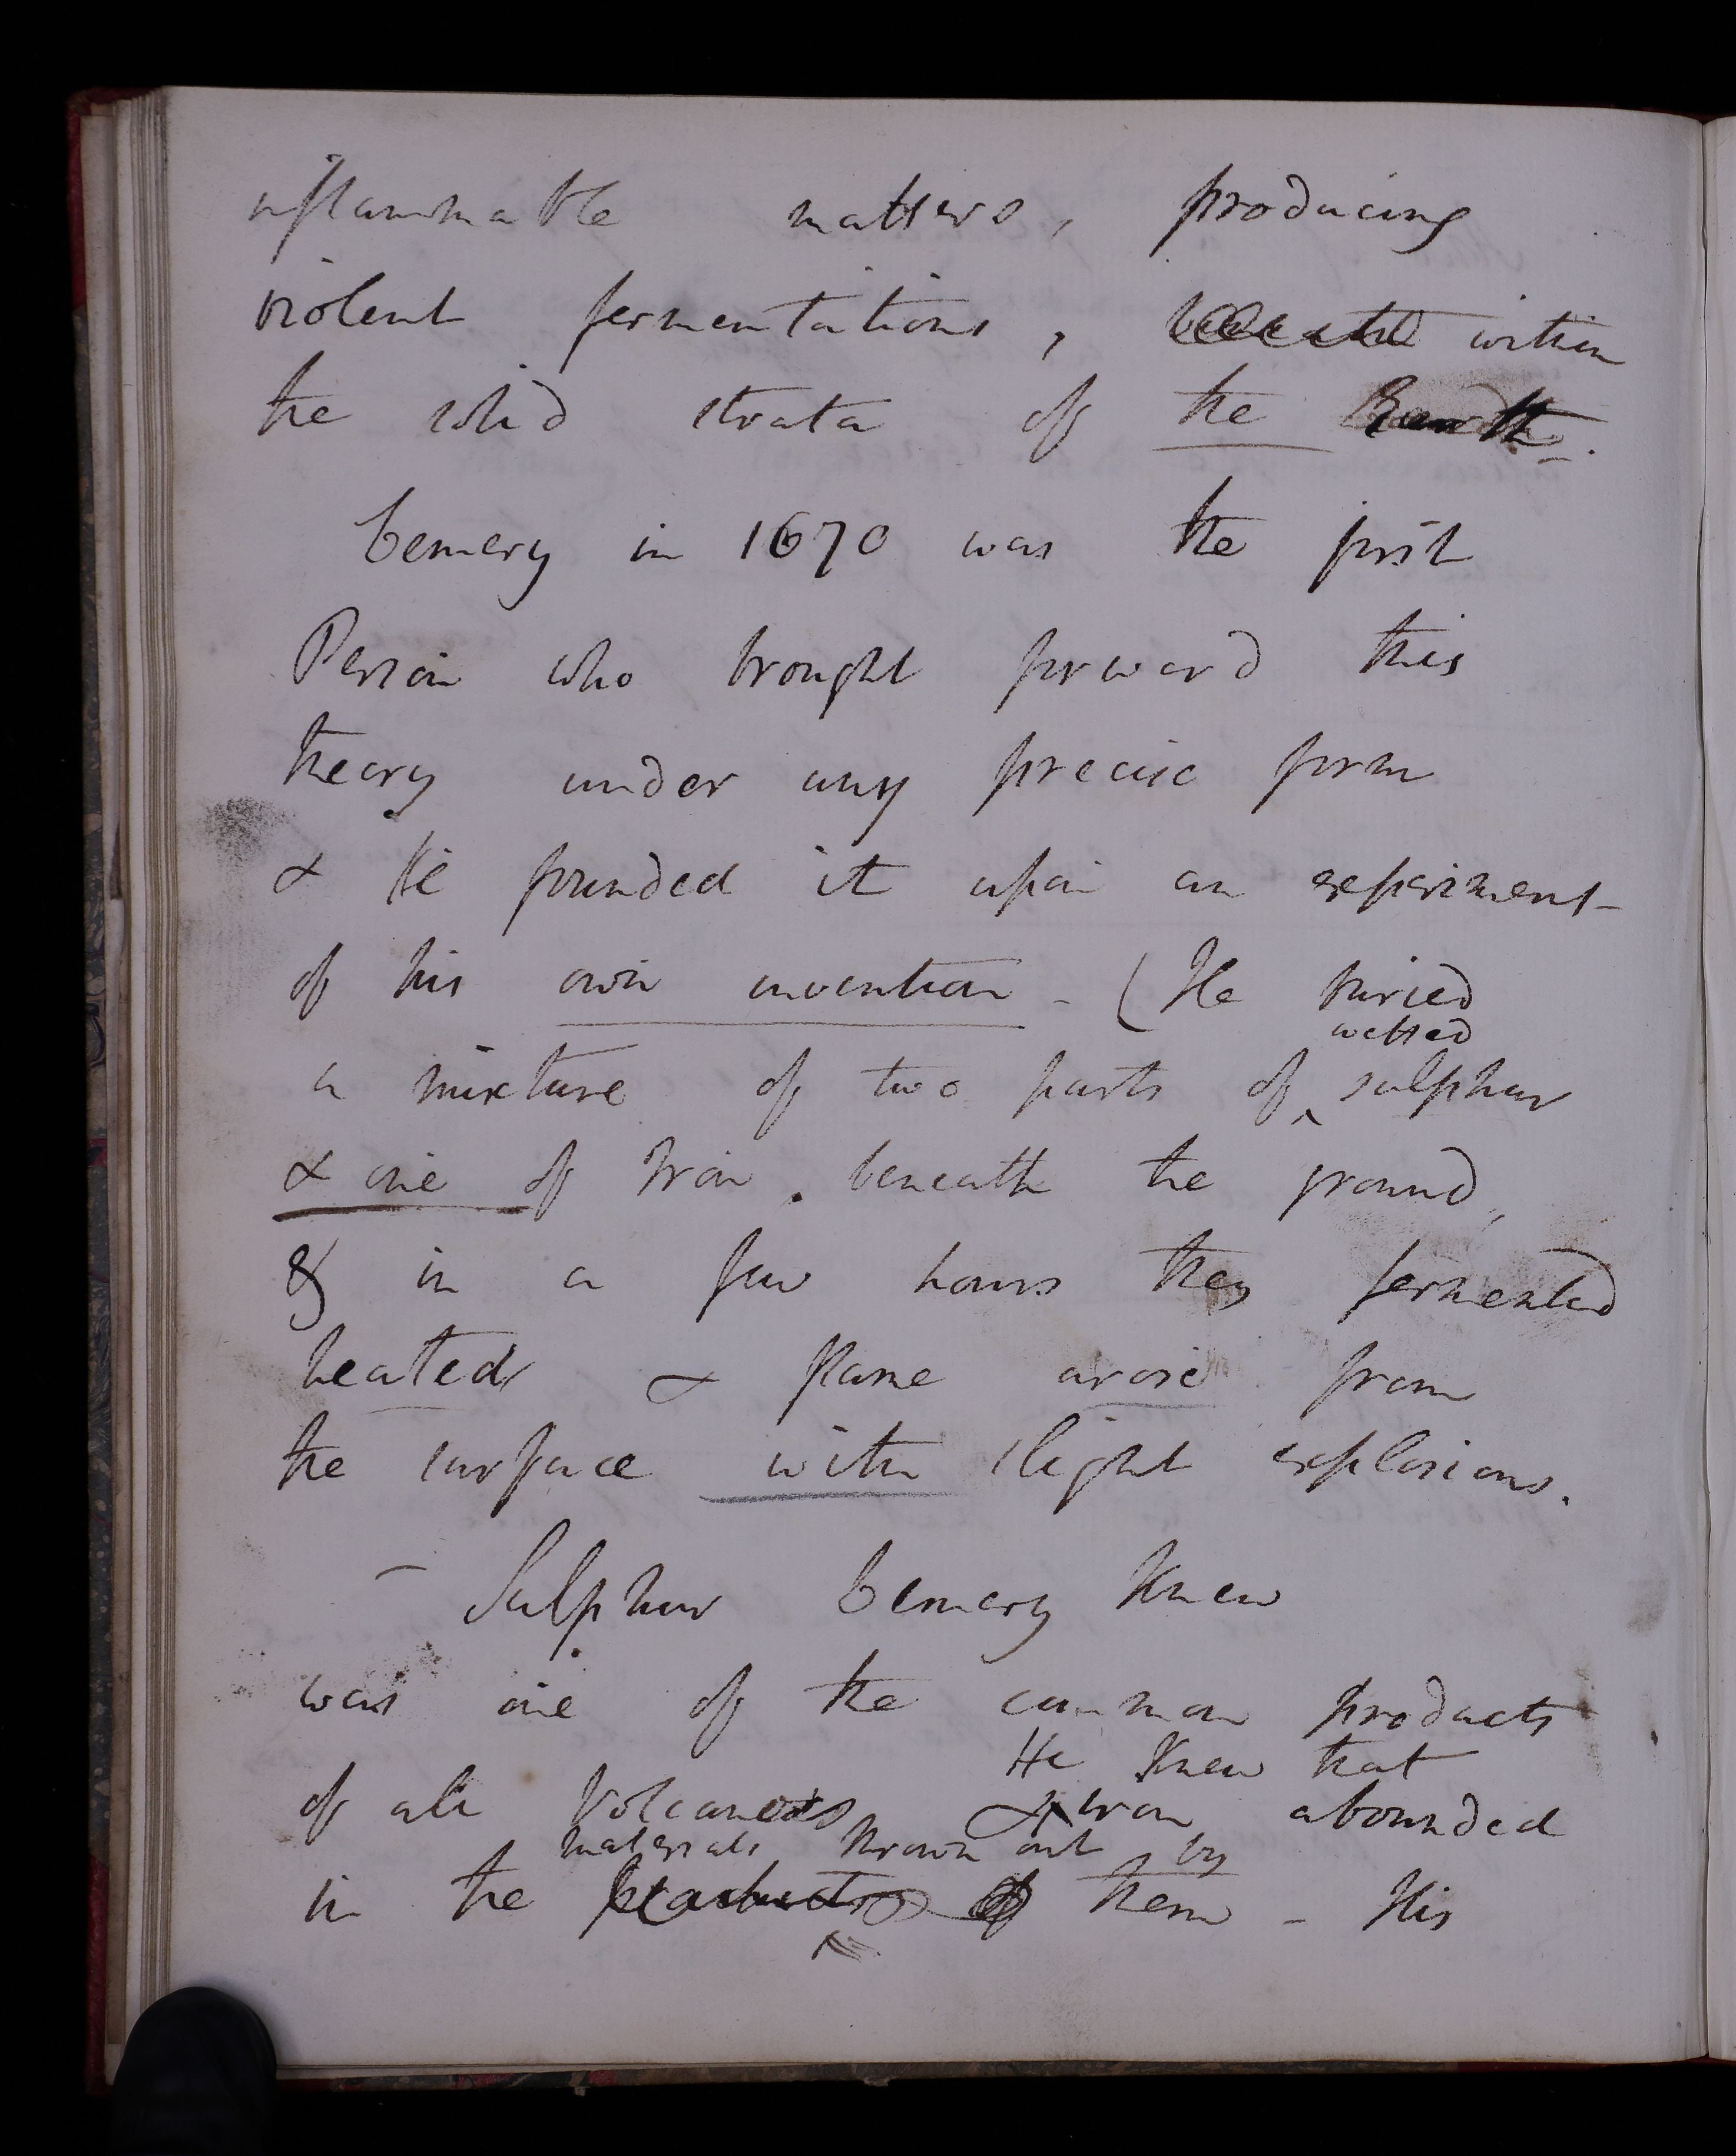 inflammable matters, producing
violent fermentations, beneath within
the solid strata of the Earth.
Lemery in 1670 was the first
Person who brought forward this
theory under any precise form
& He founded it upon an experiment
of his own invention - (He buried
wetted
a mixture of two parts of ^ sulphur
& one of Iron . beneath the ground,
& in a few hours they fermented
heated & flame arose from
the surface with slight explosions.
- Sulphur Lemery Knew
was one of the common products
He Knew that
of all Volcanoes & iron abounded
materials thrown out by
in the products of them - His